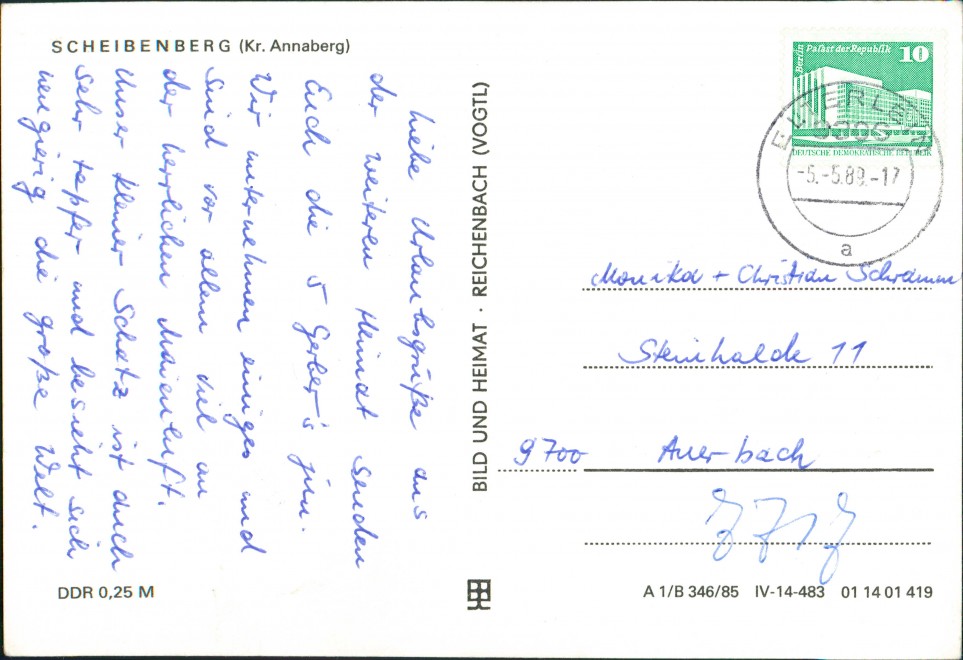 SCHEIBENBERG (Kr. Annaberg)
Liebe Urlaubsgrüße aus
der weiteren Heimat senden
Euch die 5 Gerber's jun.
Wir unternehmen einiges und
sind vor allem viel an
der herrlichen Maienluft.
Unser kleiner Schatz ist auch
sehr tapfer und besieht sich
neugierig die große Welt.
DDR 0,25 M
BILD UND HEIMAT · REICHENBACH (VOGTL)
Berlin Palast der Republik 10
DEUTSCHE DEMOKRATISCHE REPUBLIK
ELTERLEIN
-5.-5.89.-17
a
Monika + Christian Schramm
Steinhalde 11
9700 Auerbach
A 1/B 346/85 IV-14-483 01 14 01 419